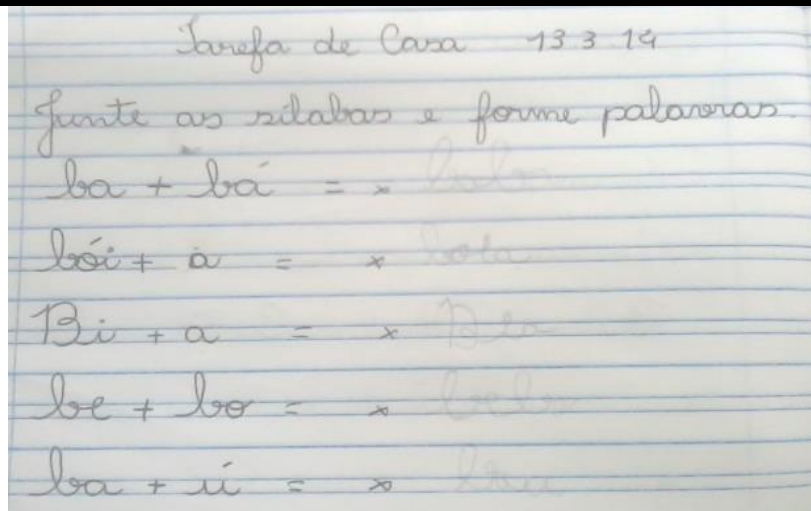 Tarefa de Casa 13 3 19
Junte as silabas e forme palavras.
ba + bá = x
bói + a = x
Bi + a = x Bia
be + bo = x bebo
ba + ú = x